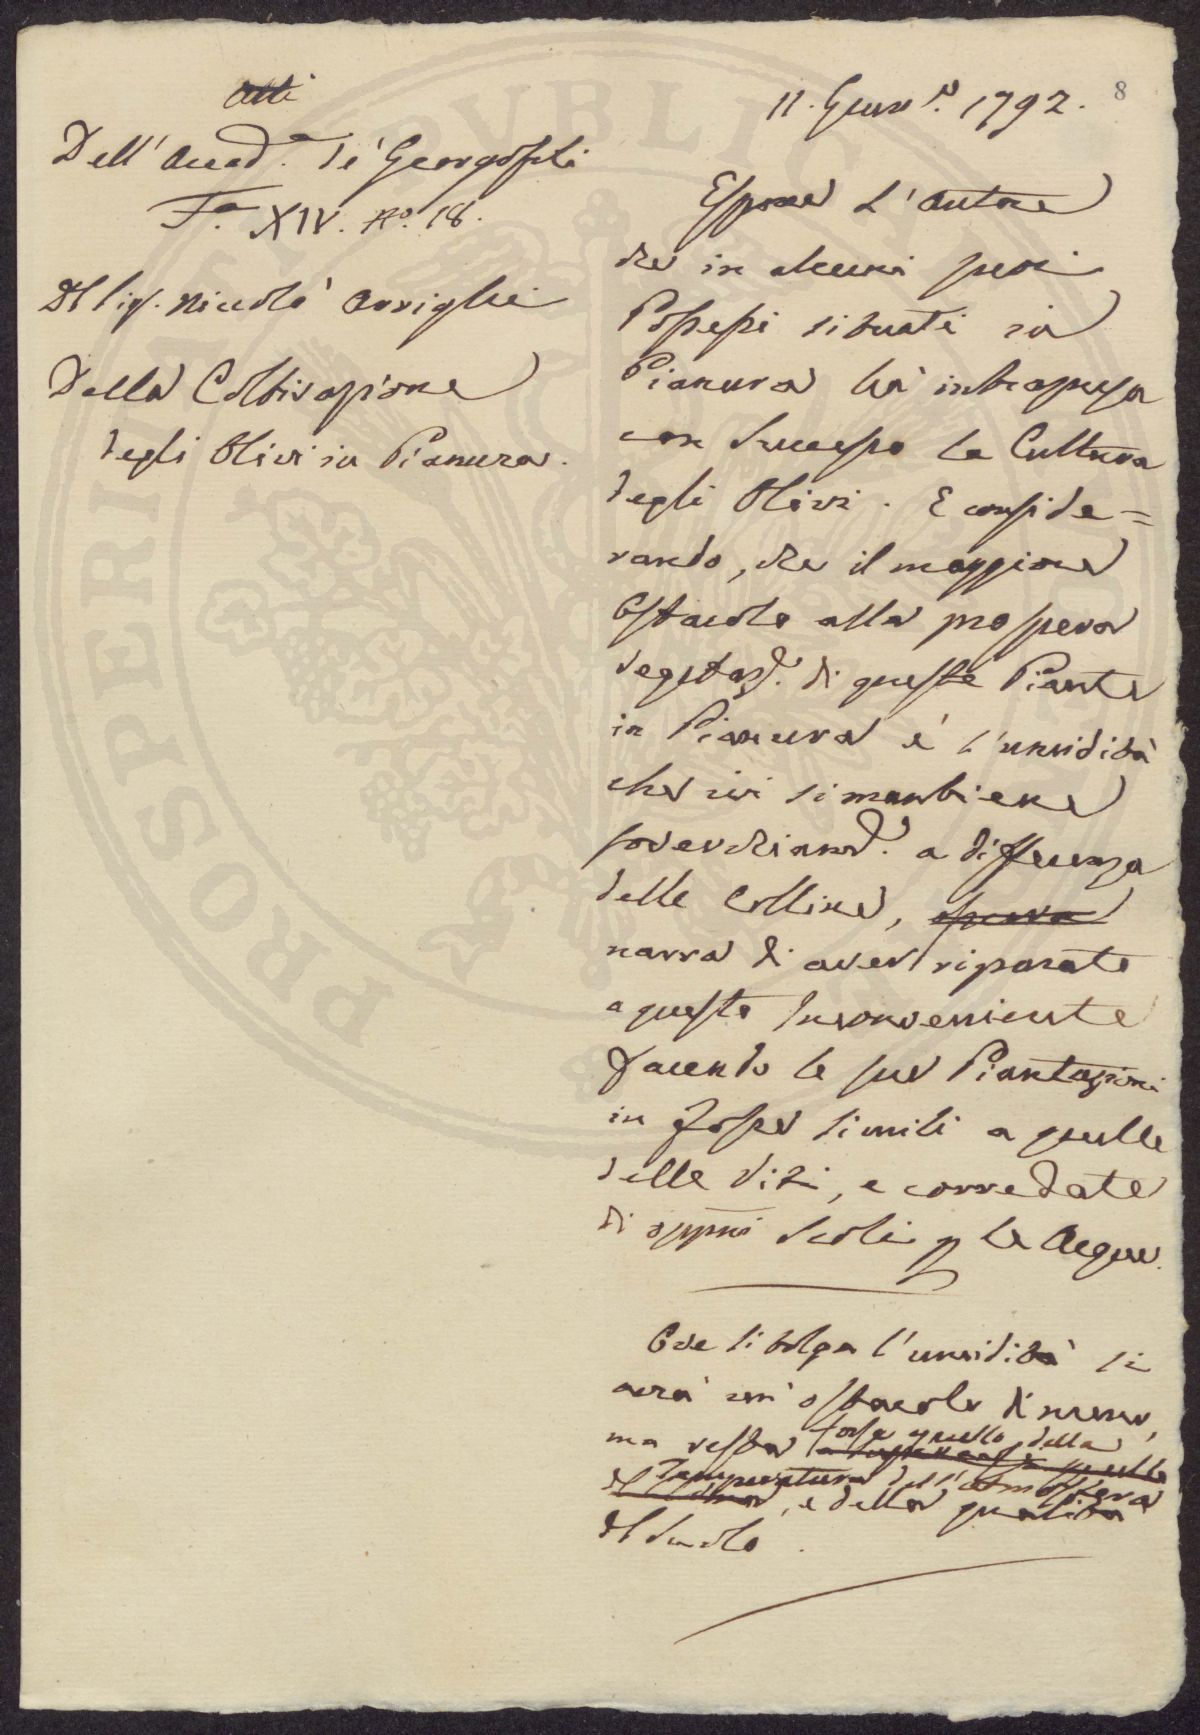 Atti
Dell' Accad.a de' Georgofili
F.a XIV. No. 18.
Del Sig. Niccolò Arrighi
Della Coltivazione
degli Olivi in Pianura.
8
11. Genn.o 1792.
Espone l'Autore
che in alcuni suoi
Possessi situati in
Pianura hà intrapresa
con Successo la Cultura
degli Olivi. E conside=
rando, che il maggiore
Ostacolo alla prospera
vegetaz.e di queste Piante
in Pianura è l'umidità
che ivi si mantiene
soverchiam.e a differenza
delle Colline,
narra di aver riparato
a questo Inconveniente
facendo le sue Piantazioni
in fosse simili a quelle
delle Viti, e corredate
di opp.ni Scoli p le Acque.
Ove si tolga l'umidità si
avrà un' ostacolo di meno,
ma resta forse quello della
Temperatura dell'atmosfera
, e della qualità
del Suolo.
PVBLICAE
PROSPERITATI